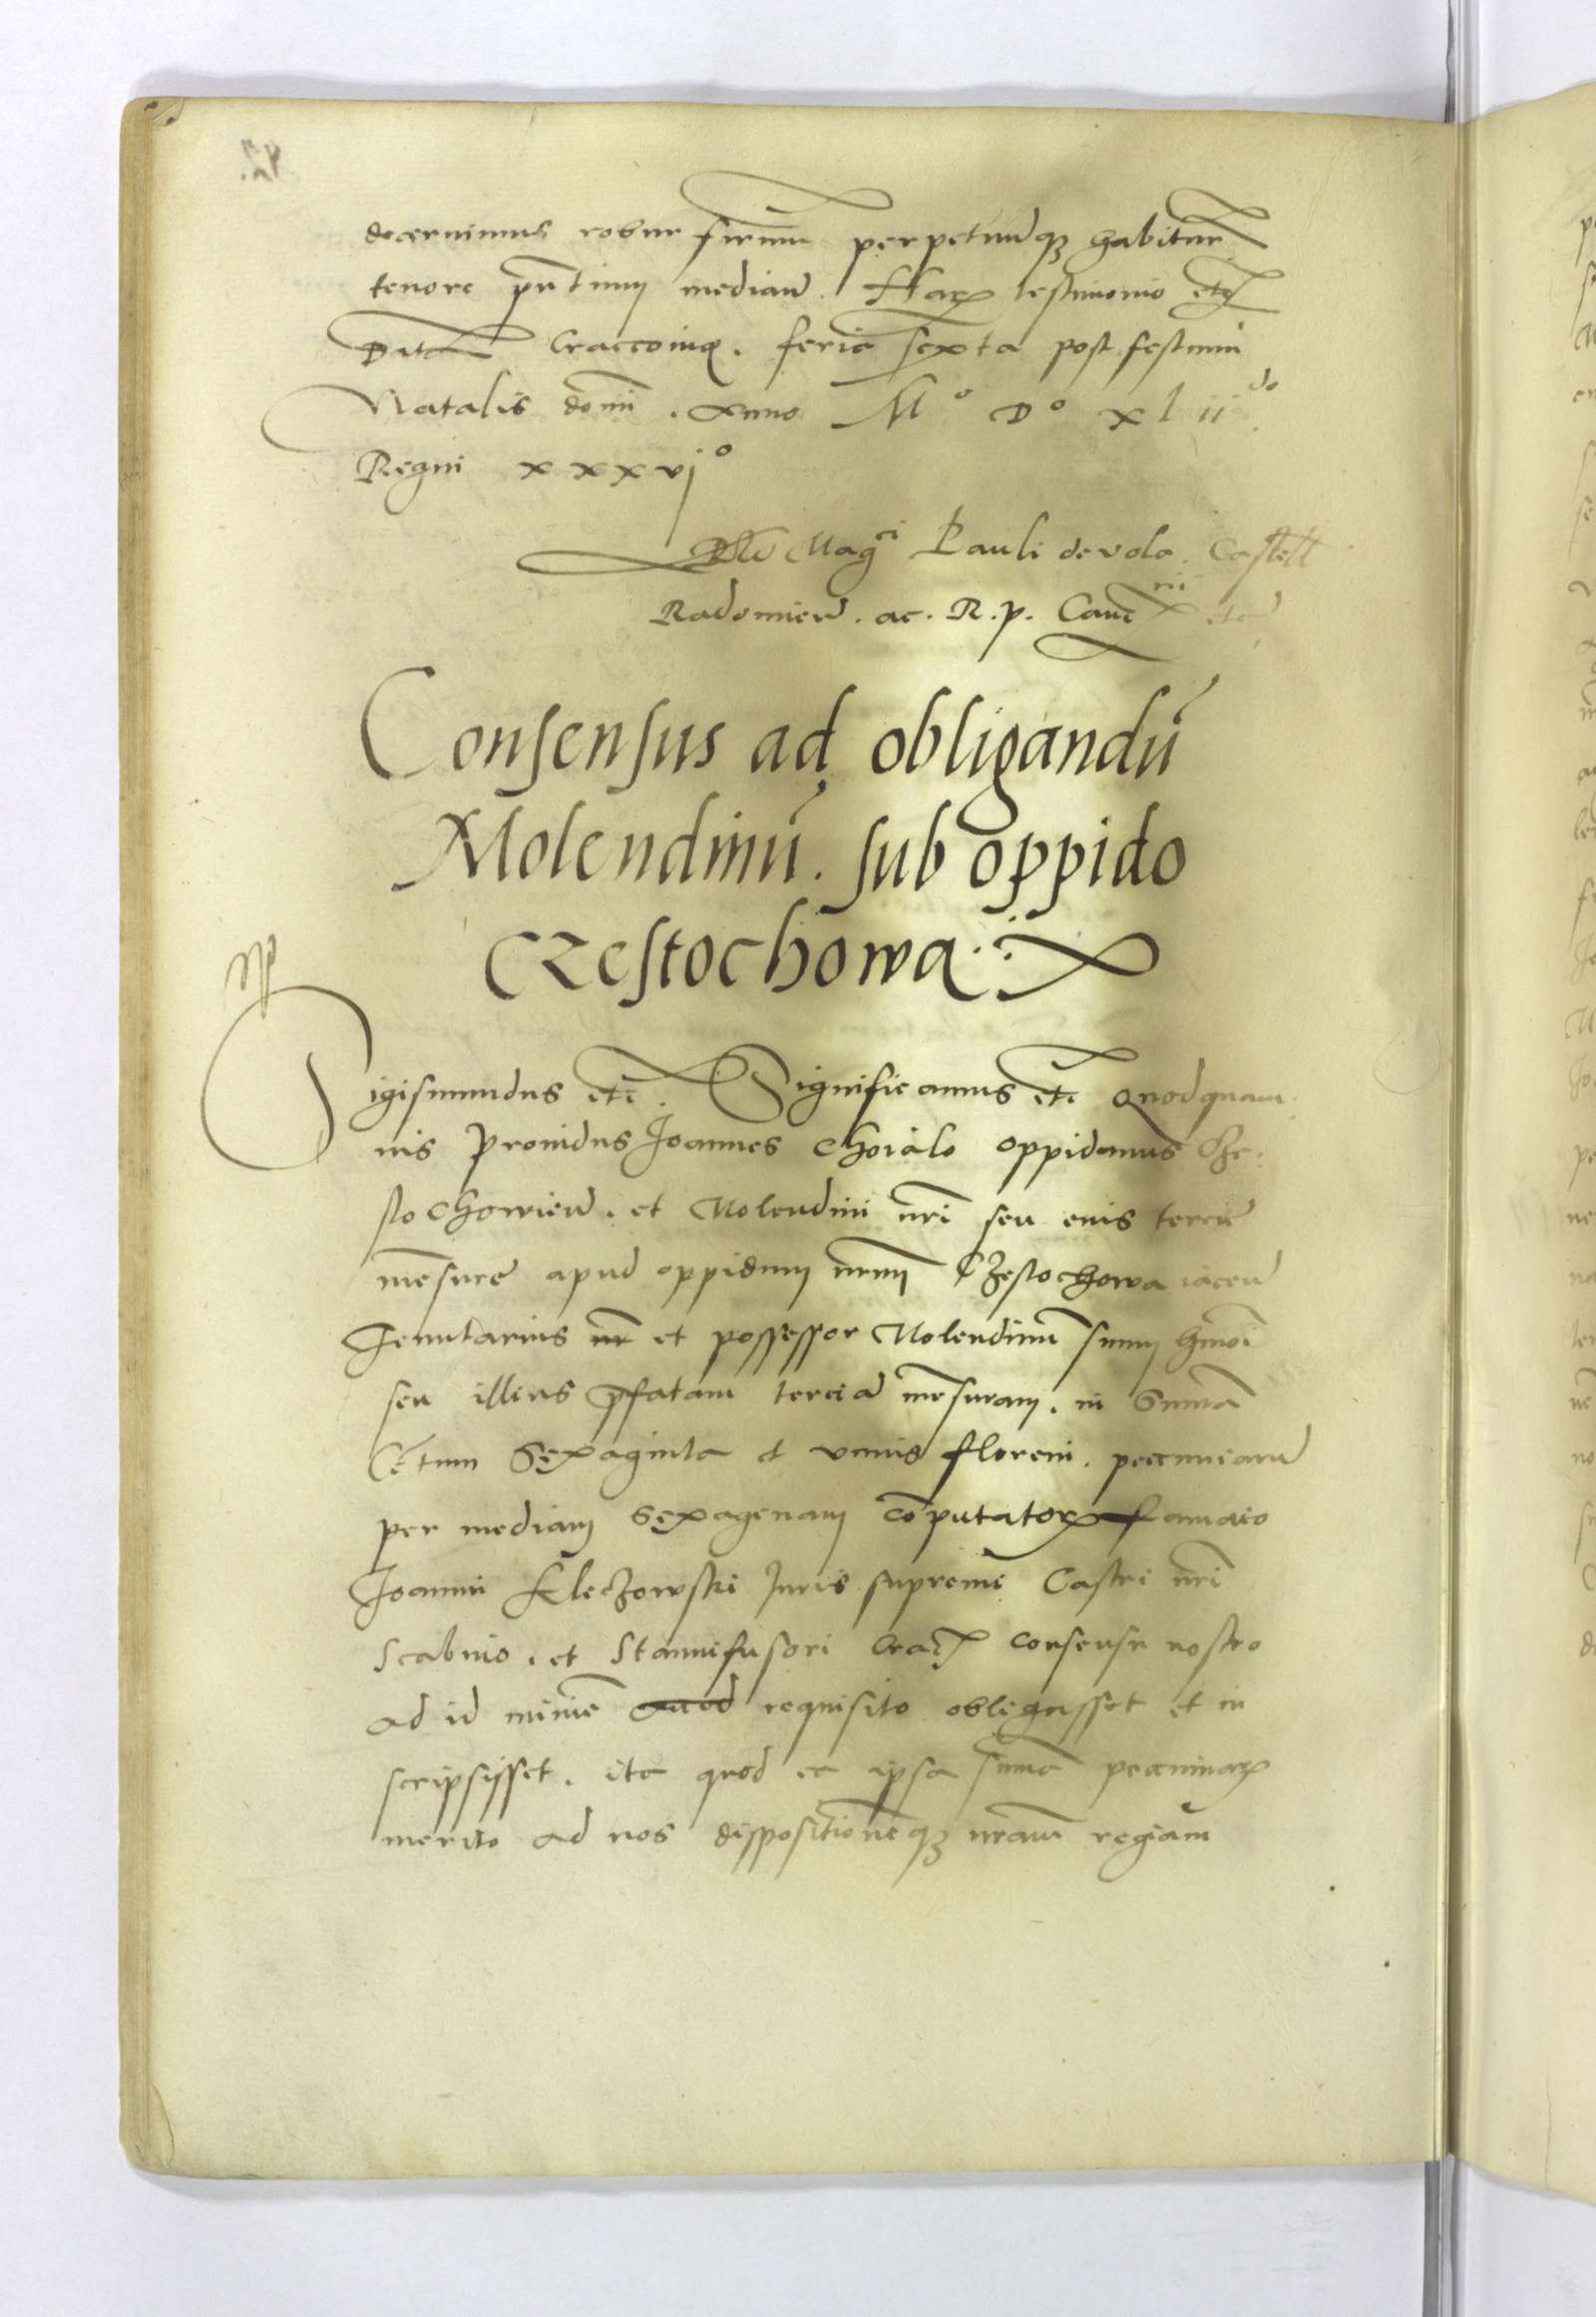 decernimus robur firmum perpetuumq3 habitur
tenore pñtium median. Harꝝ testimonio etc
Dat Craccouię. feria sexta post festum
Natalis domi. Anno Mº Dº xl ii do
Regni xxxvjº
Rlō Magci Pauli de vola. Castell
Radomien. ac. R. p. Canc rii etc
Consensus ad obligandū
Molendinū. sub oppido
Czestochowa
Sigismundus etc. Significamus etc Quod quam
uis Prouidus Joannes Choialo oppidanus Cze
stochowien. et Molendini nri seu eius tercie
mēsure apud oppidum nrum Czestochowa iacen
Tenutarius et possessor Molendinum suum hmoi
seu illius p̄fatam terciā mesuram. in Summa
Cētum Sexaginta et vnius floreni. pecuniarum
per mediam Sexagenam cōputatorꝝ famato
Joanni Kleczowski Juris supremi Castri nri
Scabino. et Stannifusori Crac consensu nostro
ad id minime requisito obligasset et in
scripsisset. ita quod ea ipsa suma pecuniarꝝ
merito ad nos dispositioneq3 nram regiam